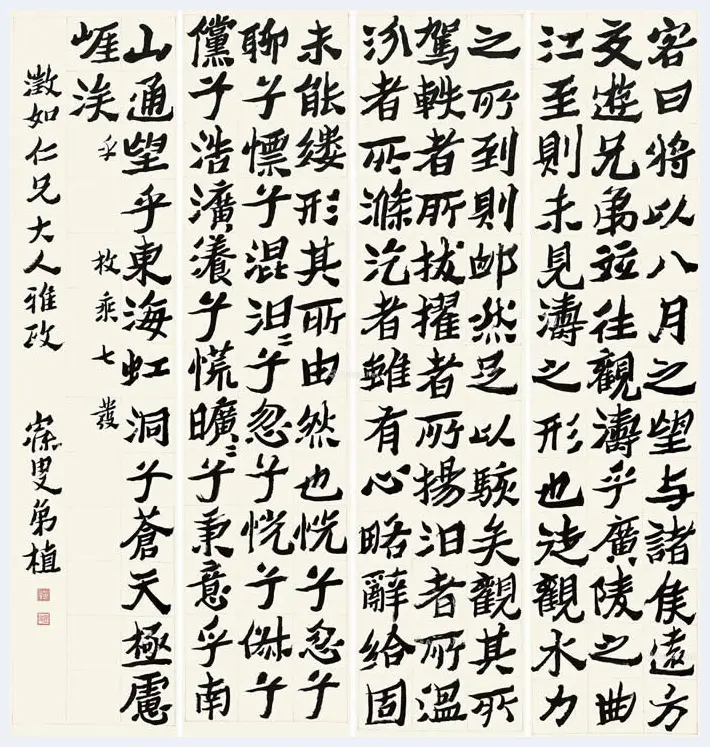 客曰將以八月之望与諸侯遠方
交遊兄弟並往觀濤乎廣陵之曲
江至則未見濤之形也徒觀水力
之所到則卹然足以駭矣觀其所
駕軼者所拔擢者所揚汩者所溫
汾者所滌汔者雖有心略辭給固
未能縷形其所由然也恍兮忽兮
聊兮慓兮混汩〻兮忽兮恍兮俶兮
儻兮浩瀇瀁兮慌曠〻兮秉意乎南
山通望乎東海虹洞兮蒼天極慮
崕涘乎 枚乘七發
澂如仁兄大人雅政 寐叟弟植